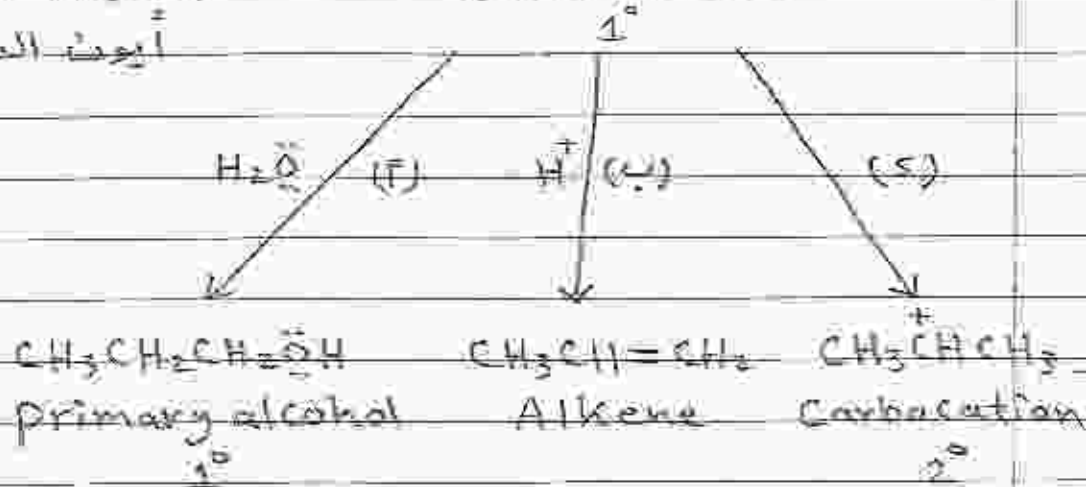 1°
أيون
H₂Ö (أ) H⁺ (ب) (ج)
CH₃CH₂CH₂ÖH CH₃CH=CH₂ CH₃C⁺HCH₃
primary alcohol Alkene Carbocation
1° 2°